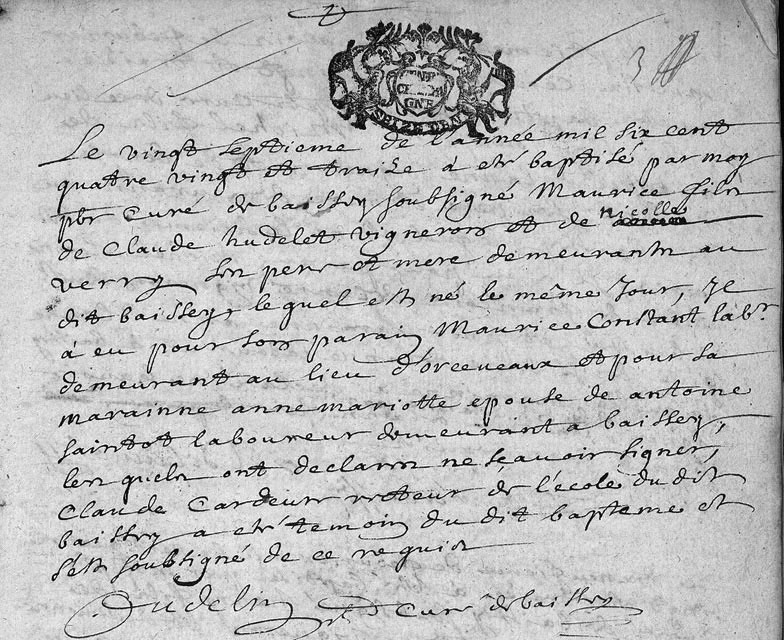 GNE
SEIZE DEN
3
Le vingt septieme de l'année mil six cent
quatre vingt et traize à eté baptisé par moy
pbr Curé de baissey soubsigné Maurice fils
de Claude hudelet vigneron et de nicolle
verry ses pere et mere demeurants au
dit baissey, lequel est né le même Jour, Je
à eu pour son parain Maurice Constant labr.
demeurant au lieu d'orceveaux et pour sa
marainne anne mariotte epouse de antoine
saintot laboureur demeurant a baissey,
lesquels ont declares ne sçavoir signer,
Claude Cardeur recteur de l'école du dit
baissey a eté temoin du dit bapteme et
s'est soubsigné de ce requis
Dudelin Curé de baissey